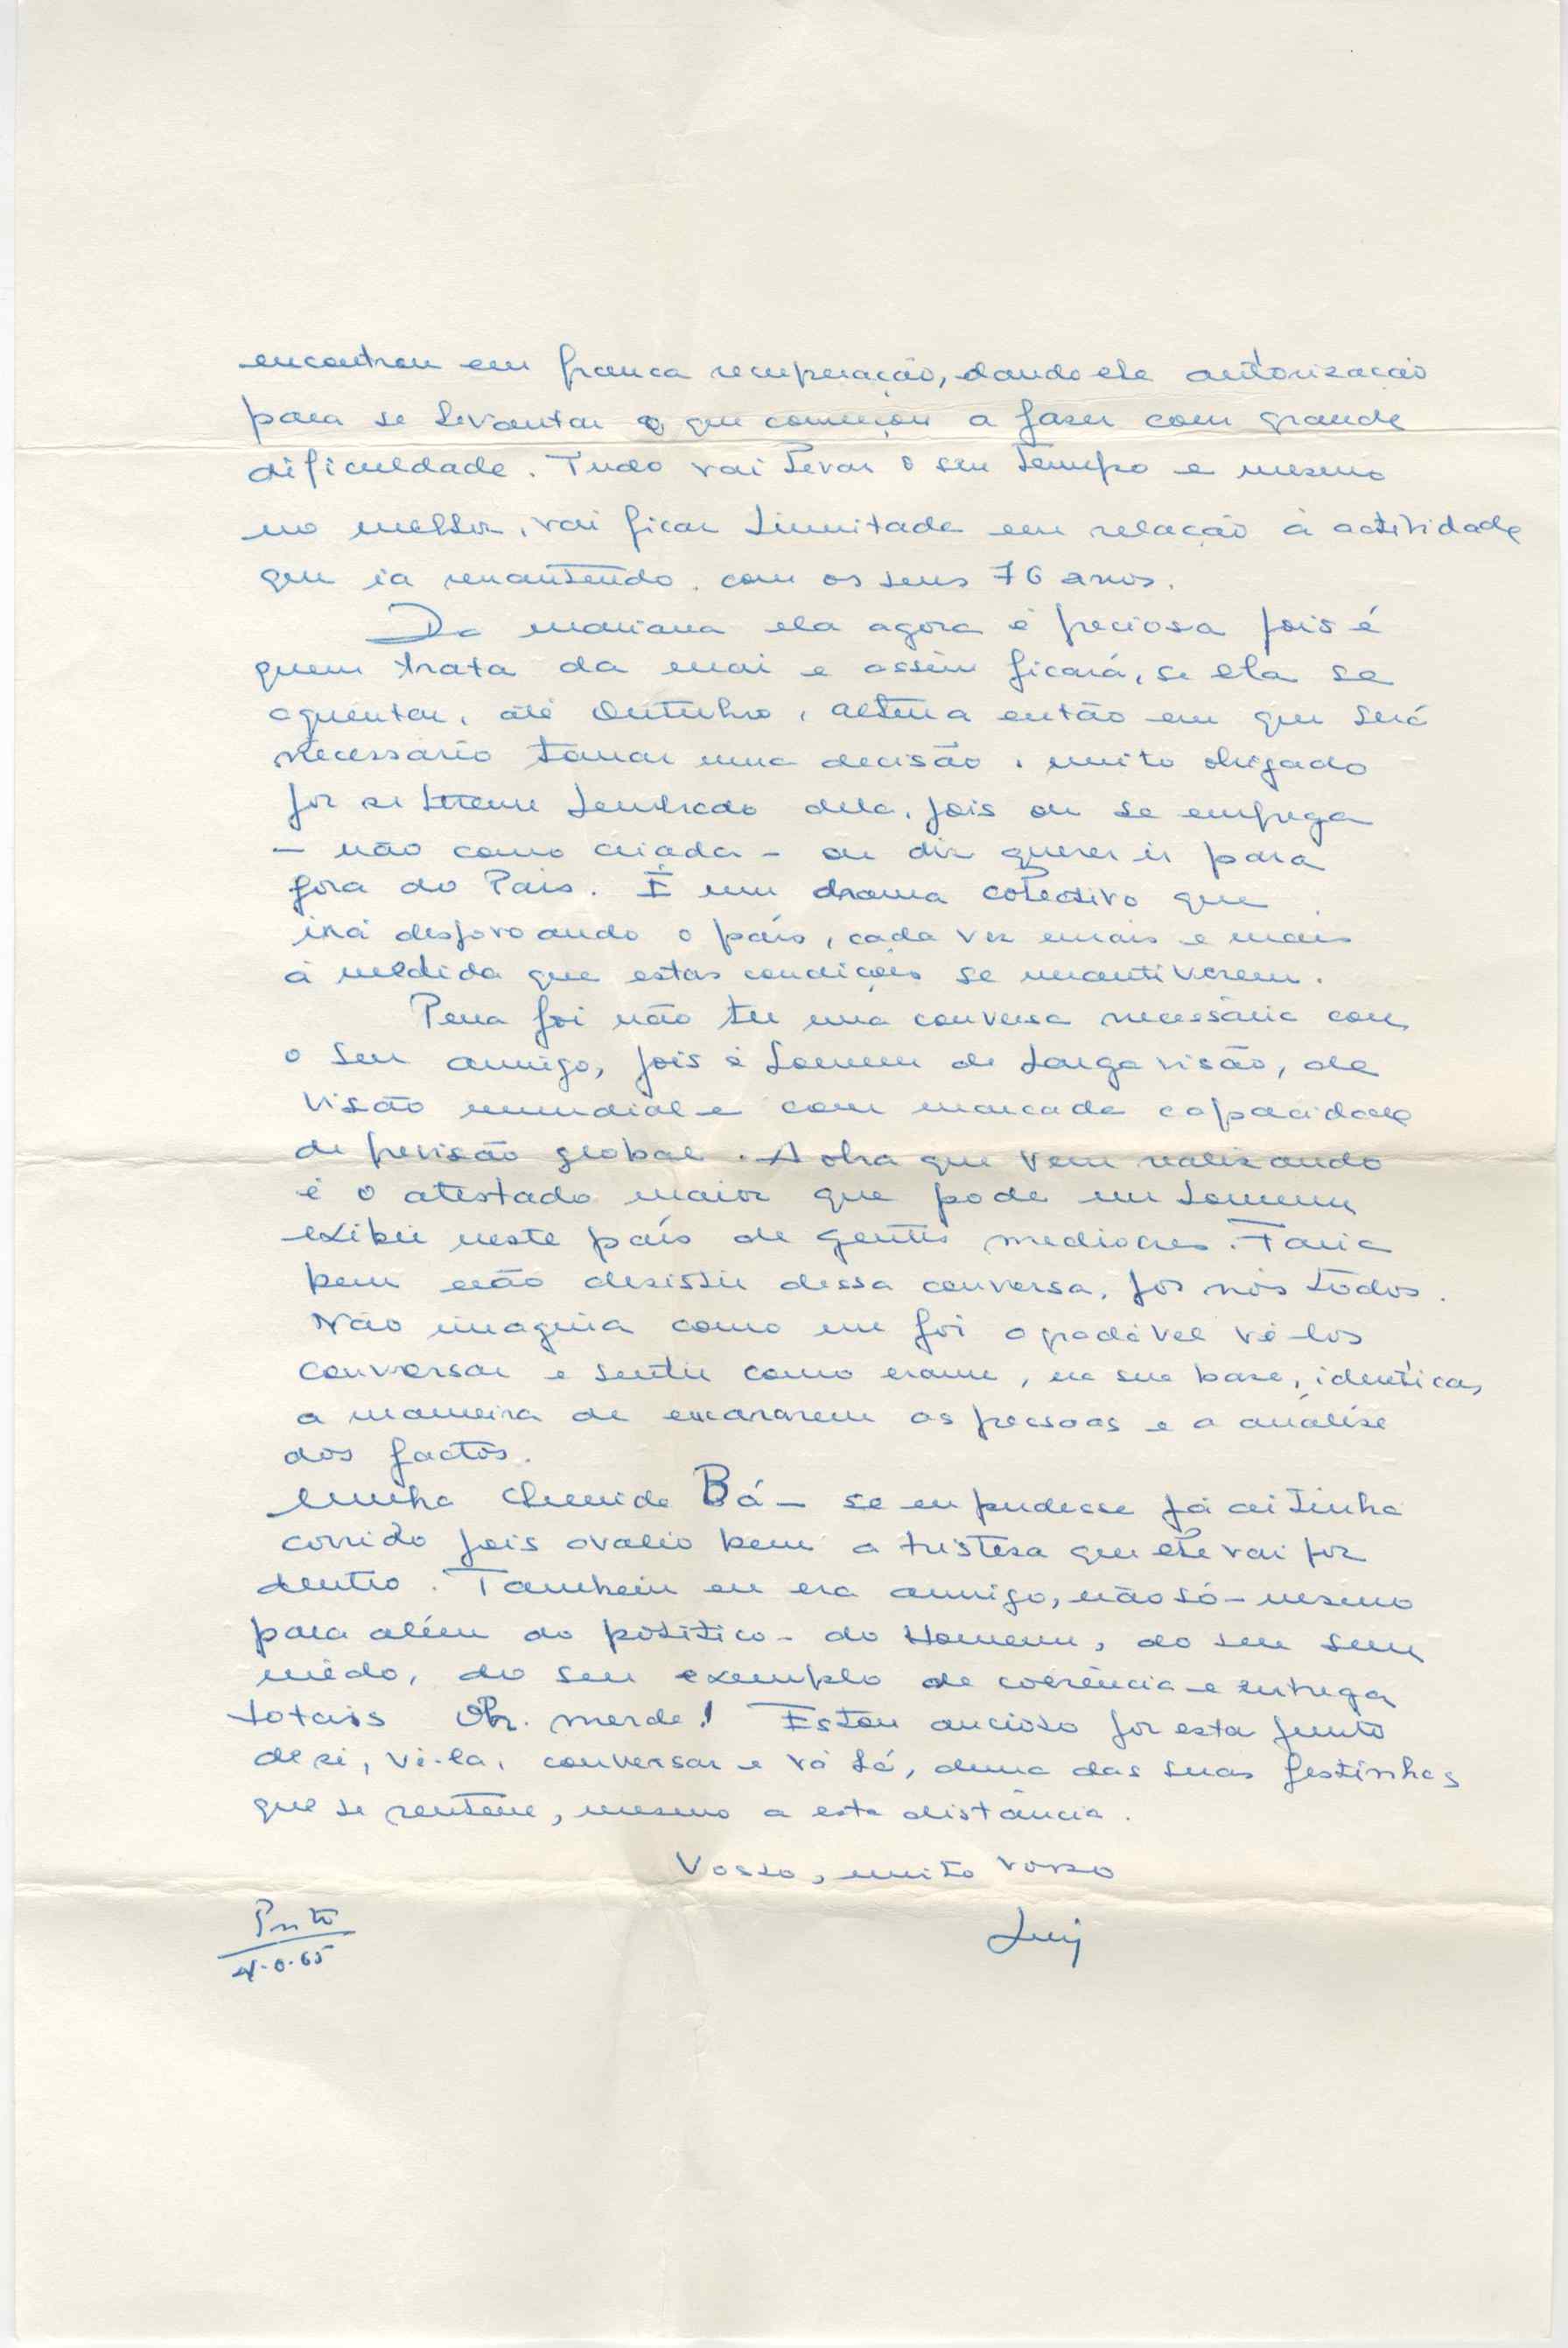 encontrou em franca recuperação, dando ele autorização
para se levantar o que começou a fazer com grande
dificuldade. Tudo vai levar o seu tempo e mesmo
no melhor, vai ficar limitada em relação à actividade
que ia mantendo com os seus 76 anos.
Da Mariana ela agora é preciosa pois é
quem trata da mãi e assim ficará, se ela se
aguentar, até Outubro, altura então em que será
necessário tomar uma decisão. Muito obrigado
por se terem lembrado dela, pois ou se emprega
- não como criada - ou diz querer ir para
fora do País. É um drama colectivo que
irá despovoando o país, cada vez mais e mais
à medida que estas condições se mantiverem.
Pena foi não ter uma conversa necessária com
o seu amigo, pois é homem de larga visão, de
visão mundial e com marcada capacidade
de previsão global. A obra que vem realizando
é o atestado maior que pode um homem
exibir neste país de gentes mediocres. Faria
bem não desistir dessa conversa, por nós todos.
Não imagina como me foi agradável vê-los
conversar e sentir como eram, na sua base, identicas,
a maneira de encararem as pessoas e a análise
dos factos.
Minha Bá - se eu pudesse já aí tinha
corrido pois avalio bem a tristeza que lhe vai por
dentro. Tambem eu era amigo, não só - mesmo
para além do politico - do Homem, do seu sem
mêdo, do seu exemplo de coerência e entrega
totais Oh. merde! Estou ancioso por esta junto
de si, vê-la, conversar e vá lá, duma das suas festinhas
que se sentem, mesmo a esta distância.
Vosso, muito vosso
Luiz
Porto
65